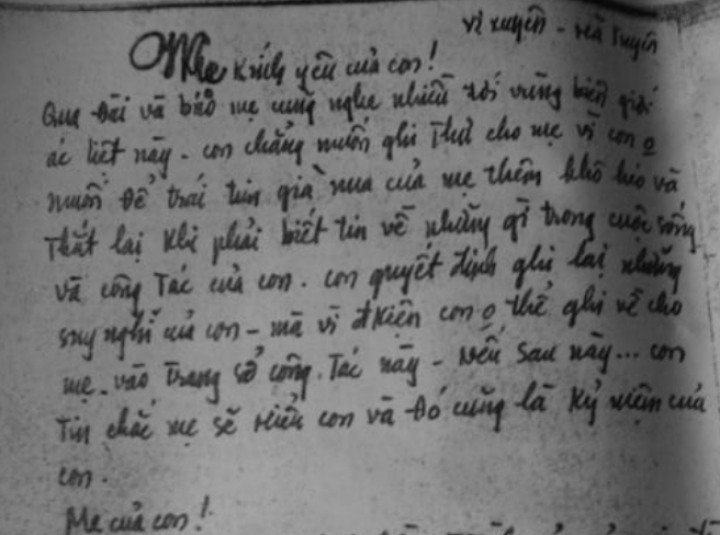 Vị xuyên - Hà Tuyên
Mẹ kính yêu của con!
Qua đài và báo mẹ cũng nghe nhiều tới vùng biên giới
ác liệt này. con chẳng muốn ghi Thư cho mẹ vì con o
muốn để trái tim già nua của mẹ thêm khô héo và
Thắt lại khi phải biết tin về những gì trong cuộc sống
và công Tác của con. con quyết định ghi lại những
suy nghĩ của con - mà vì đkiện con o thể ghi về cho
mẹ. vào Trang sổ công Tác này - Nếu sau này... con
Tin chắc mẹ sẽ Hiểu con và đó cũng là kỷ niệm của
con.
Mẹ của con!